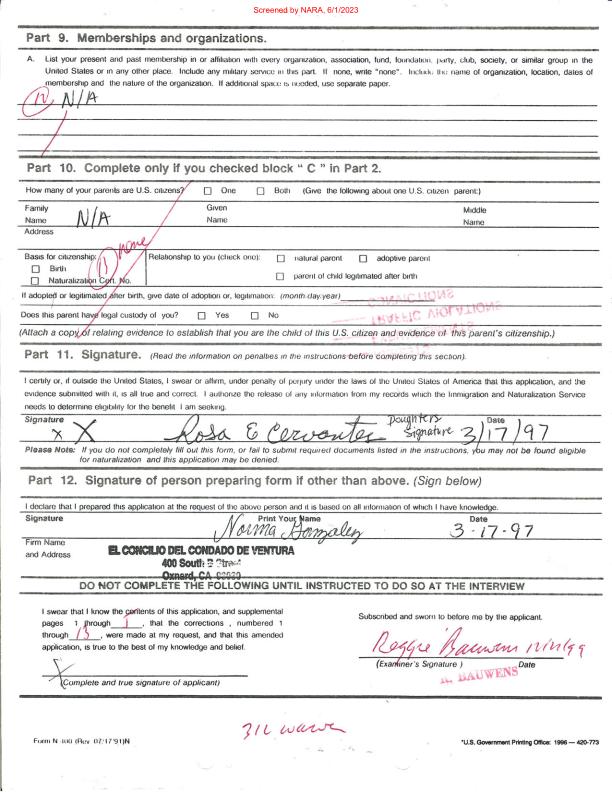 Screened by NARA, 6/1/2023
Part 9. Memberships and organizations.
A. List your present and past membership in or affiliation with every organization, association, fund, foundation, party, club, society, or similar group in the
United States or in any other place. Include any military service in this part. If none, write "none". Include the name of organization, location, dates of
membership and the nature of the organization. If additional space is needed, use separate paper.
12 N/A
Part 10. Complete only if you checked block " C " in Part 2.
How many of your parents are U.S. citizens? One Both (Give the following about one U.S. citizen parent:)
Family Given Middle
Name N/A Name Name
Address
none
Basis for citizenship: Relationship to you (check one): natural parent adoptive parent
Birth
Naturalization Cert. No. parent of child legitimated after birth
If adopted or legitimated after birth, give date of adoption or, legitimation: (month day year)
CONVICTIONS
Does this parent have legal custody of you? Yes No
TRAFFIC VIOLATIONS
(Attach a copy of relating evidence to establish that you are the child of this U.S. citizen and evidence of this parent's citizenship.)
Part 11. Signature. (Read the information on penalties in the instructions before completing this section).
I certify or, if outside the United States, I swear or affirm, under penalty of perjury under the laws of the United States of America that this application, and the
evidence submitted with it, is all true and correct. I authorize the release of any information from my records which the Immigration and Naturalization Service
needs to determine eligibility for the benefit I am seeking.
Signature Daughters Date
x X Rosa E Cervantes Signature 3/17/97
Please Note: If you do not completely fill out this form, or fail to submit required documents listed in the instructions, you may not be found eligible
for naturalization and this application may be denied.
Part 12. Signature of person preparing form if other than above. (Sign below)
I declare that I prepared this application at the request of the above person and it is based on all information of which I have knowledge.
Signature Print Your Name Date
Norma Gonzalez 3-17-97
Firm Name
and Address
EL CONCILIO DEL CONDADO DE VENTURA
400 South B Street
Oxnard, CA
DO NOT COMPLETE THE FOLLOWING UNTIL INSTRUCTED TO DO SO AT THE INTERVIEW
I swear that I know the contents of this application, and supplemental
pages 1 through 1, that the corrections, numbered 1
through 13, were made at my request, and that this amended
application, is true to the best of my knowledge and belief.
X
(Complete and true signature of applicant)
Subscribed and sworn to before me by the applicant.
Reggie Bauwens
(Examiner's Signature) Date
R. BAUWENS
312 waive
Form N-400 (Rev 07/17/91)N
*U.S. Government Printing Office: 1996 — 420-773